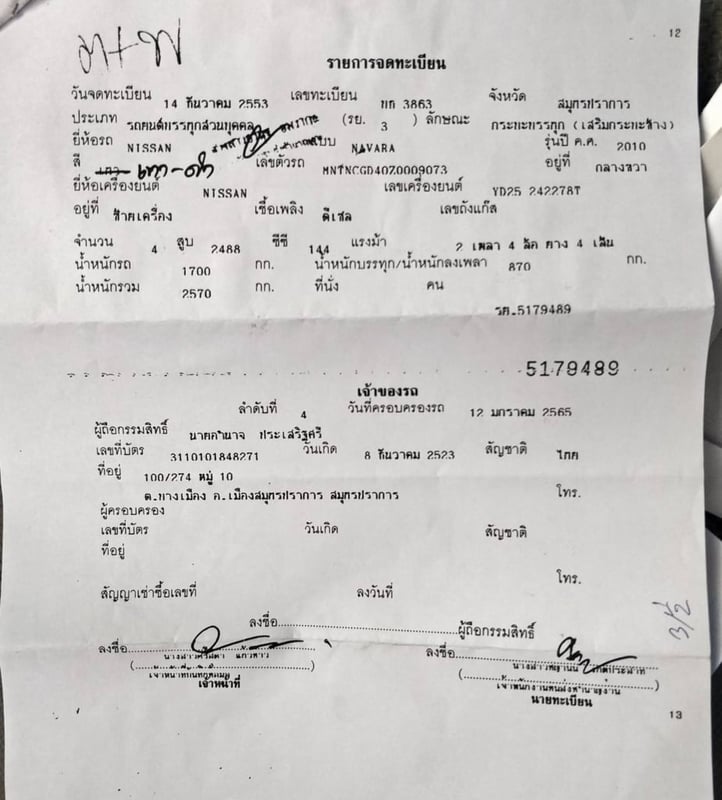 12
รายการจดทะเบียน
วันจดทะเบียน 14 ธันวาคม 2553 เลขทะเบียน 3863 จังหวัด สมุทรปราการ
ประเภท รถยนต์บรรทุกส่วนบุคคล (รย. 3 ) ลักษณะ กระบะบรรทุก (เสริมกระบะข้าง)
ยี่ห้อรถ NISSAN แบบ NAVARA รุ่นปี ค.ศ. 2010
สี เทา-ดำ เลขตัวรถ MNTNCGD40Z0009073 อยู่ที่ กลางขวา
ยี่ห้อเครื่องยนต์ NISSAN เลขเครื่องยนต์ YD25 242278T
อยู่ที่ ซ้ายเครื่อง เชื้อเพลิง ดีเซล เลขถังแก๊ส
จำนวน 4 สูบ 2488 ซีซี 144 แรงม้า 2 เพลา 4 ล้อ ยาง 4 เส้น
น้ำหนักรถ 1700 กก. น้ำหนักบรรทุก/น้ำหนักลงเพลา 870 กก.
น้ำหนักรวม 2570 กก. ที่นั่ง คน
รย.5179489
5179489
เจ้าของรถ
ลำดับที่ 4 วันที่ครอบครองรถ 12 มกราคม 2565
ผู้ถือกรรมสิทธิ์ นายอำนาจ ประเสริฐศรี
เลขที่บัตร 3110101848271 วันเกิด 8 ธันวาคม 2523 สัญชาติ ไทย
ที่อยู่ 100/274 หมู่ 10
ต.บางเมือง อ.เมืองสมุทรปราการ สมุทรปราการ โทร.
ผู้ครอบครอง
เลขที่บัตร วันเกิด สัญชาติ
ที่อยู่
โทร.
สัญญาเช่าซื้อเลขที่ ลงวันที่
ลงชื่อ ผู้ถือกรรมสิทธิ์
ลงชื่อ ลงชื่อ
เจ้าหน้าที่
นายทะเบียน
13